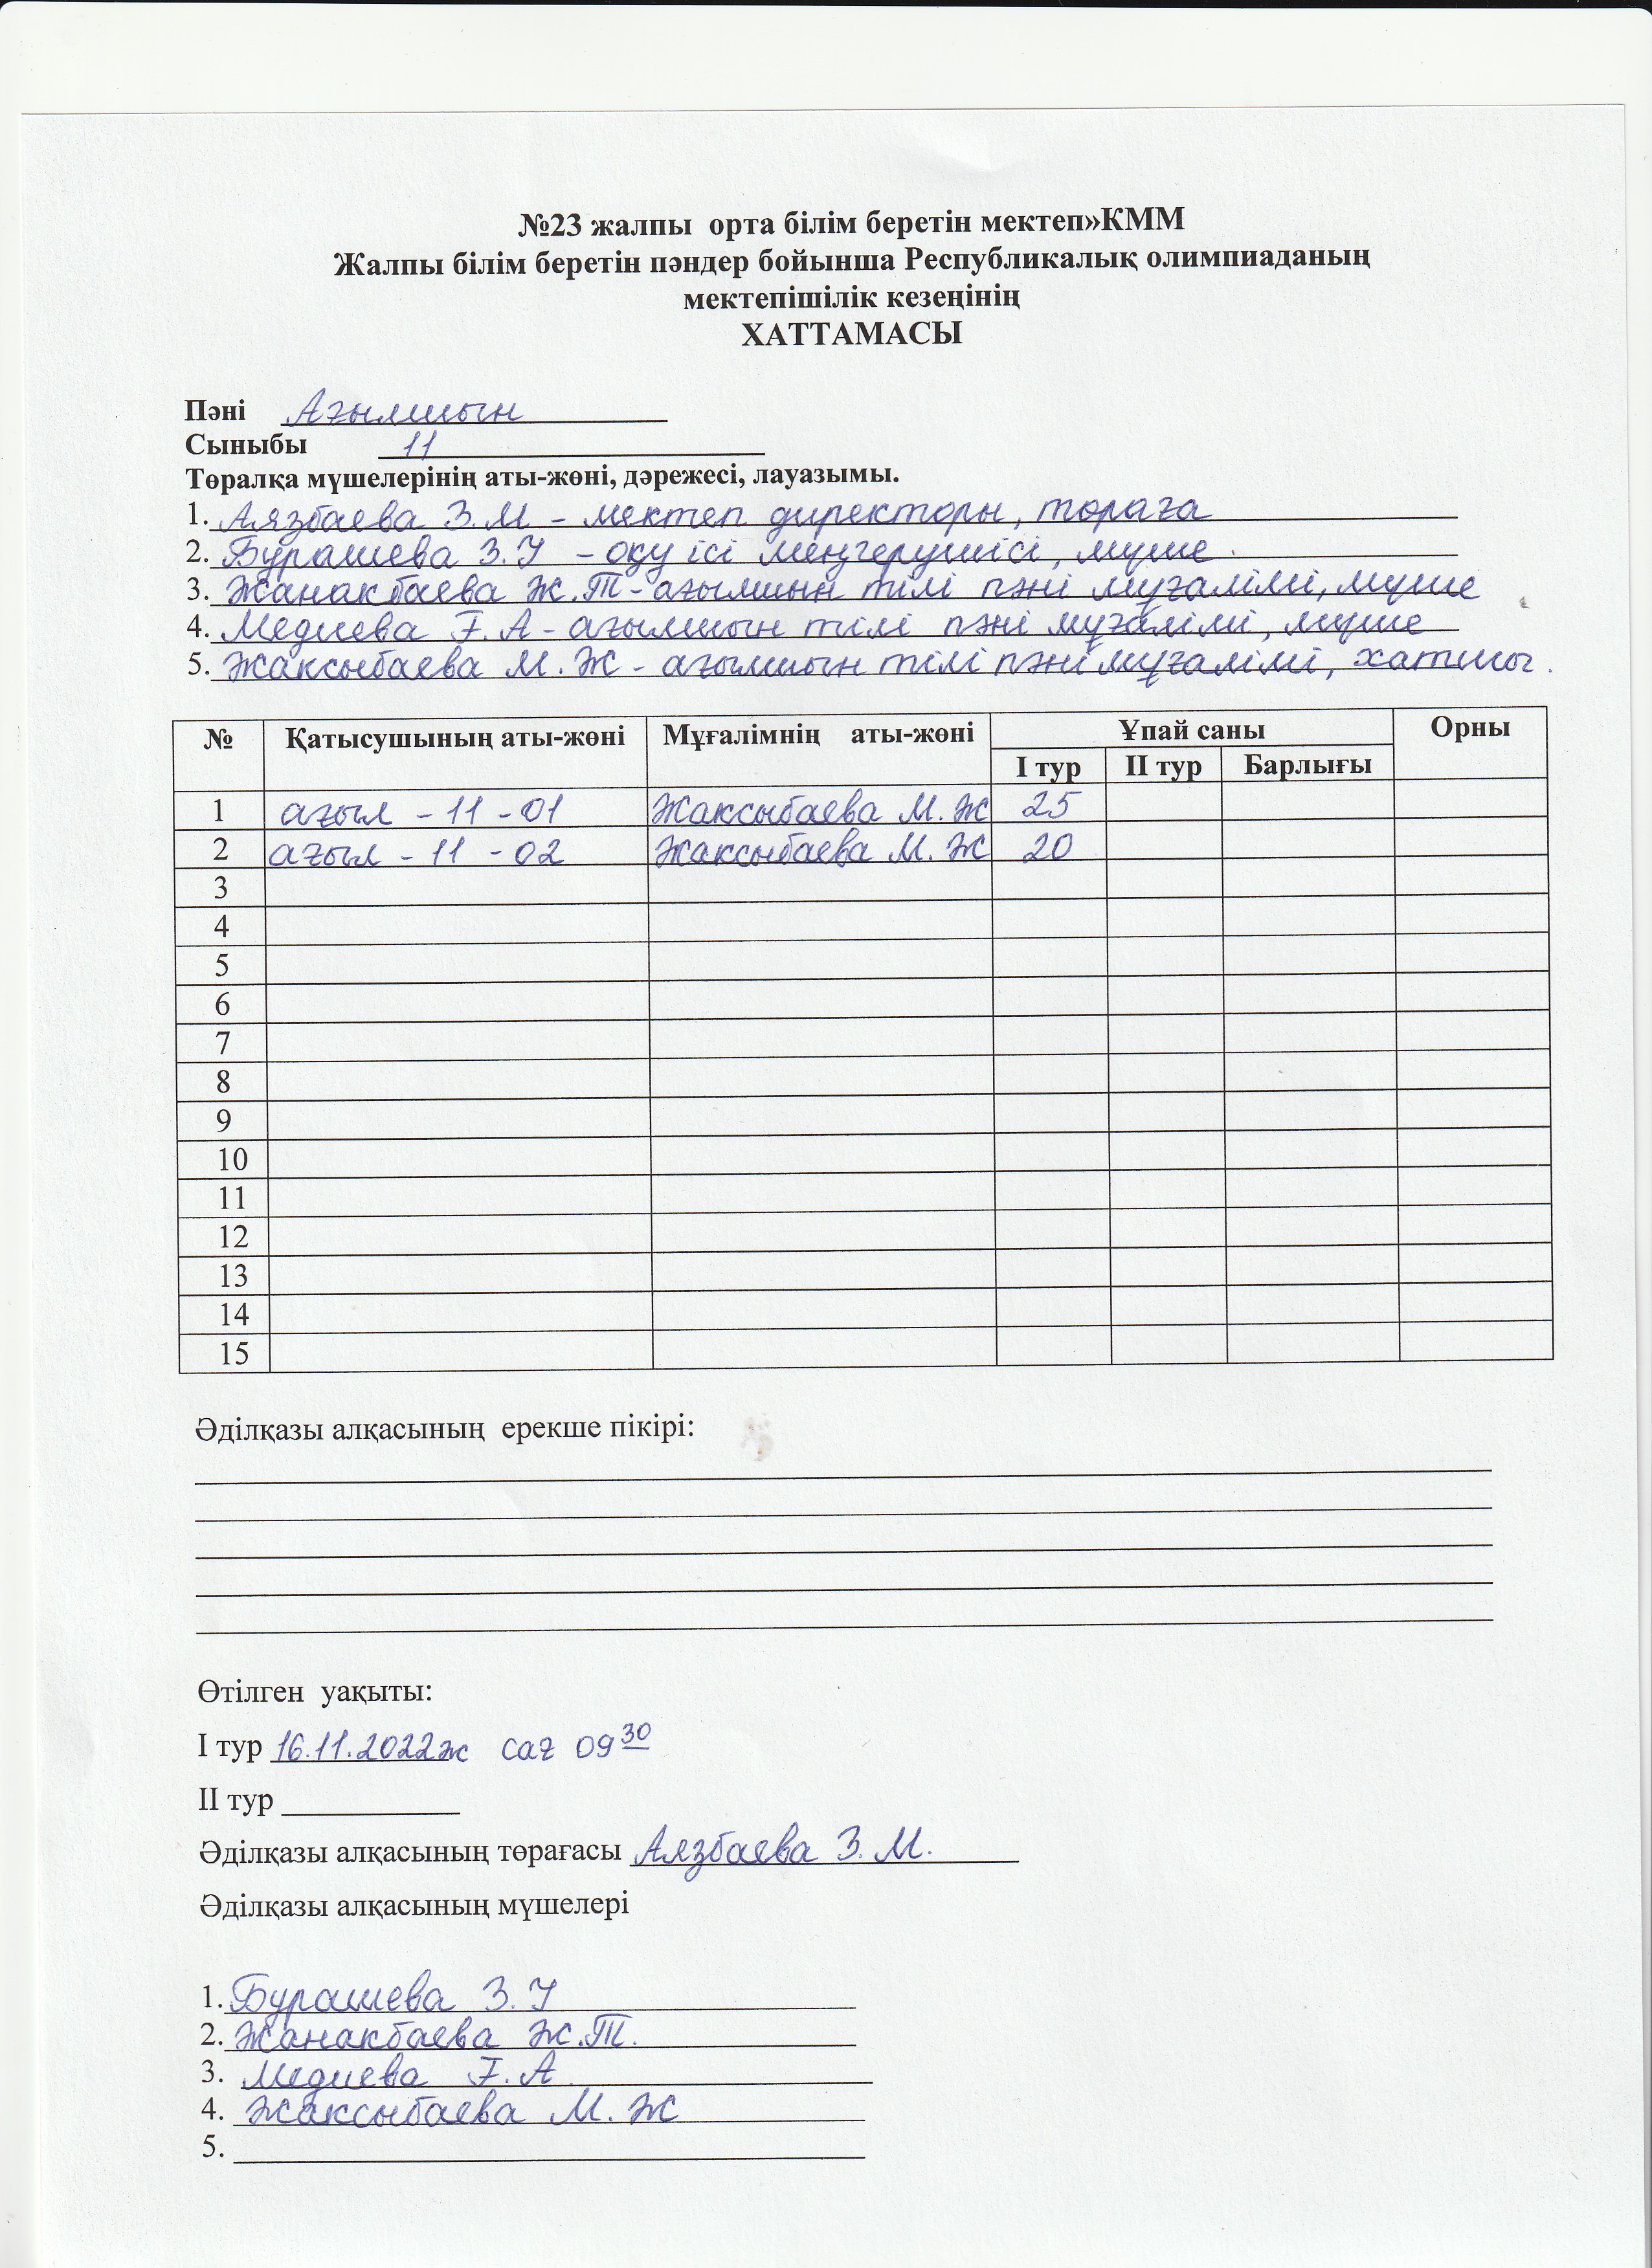 №23 жалпы орта білім беретін мектеп»КММ
Жалпы білім беретін пәндер бойынша Республикалық олимпиаданың
мектепішілік кезеңінің
ХАТТАМАСЫ
Пәні Ағылшын
Сыныбы 11
Төралқа мүшелерінің аты-жөні, дәрежесі, лауазымы.
1. Аязбаева З.М - мектеп директоры, төраға
2. Бурашева З.У - оқу ісі меңгерушісі, мүше.
3. Жанакбаева Ж.Т - ағылшын тілі пәні мұғалімі, мүше
4. Медиева Г.А - ағылшын тілі пәні мұғалімі, мүше
5. Жаксыбаева М.Ж - ағылшын тілі пәні мұғалімі, хатшы.
№ Қатысушының аты-жөні Мұғалімнің аты-жөні Ұпай саны Орны
І тур ІІ тур Барлығы
1 ағыл - 11 - 01 Жаксыбаева М.Ж 25
2 ағыл - 11 - 02 Жаксыбаева М.Ж 20
3
4
5
6
7
8
9
10
11
12
13
14
15
Әділқазы алқасының ерекше пікірі:
Өтілген уақыты:
І тур 16.11.2022ж сағ 09 30
ІІ тур
Әділқазы алқасының төрағасы Аязбаева З.М.
Әділқазы алқасының мүшелері
1. Бурашева З.У
2. Жанакбаева Ж.Т.
3. Медиева Г.А.
4. Жаксыбаева М.Ж
5.